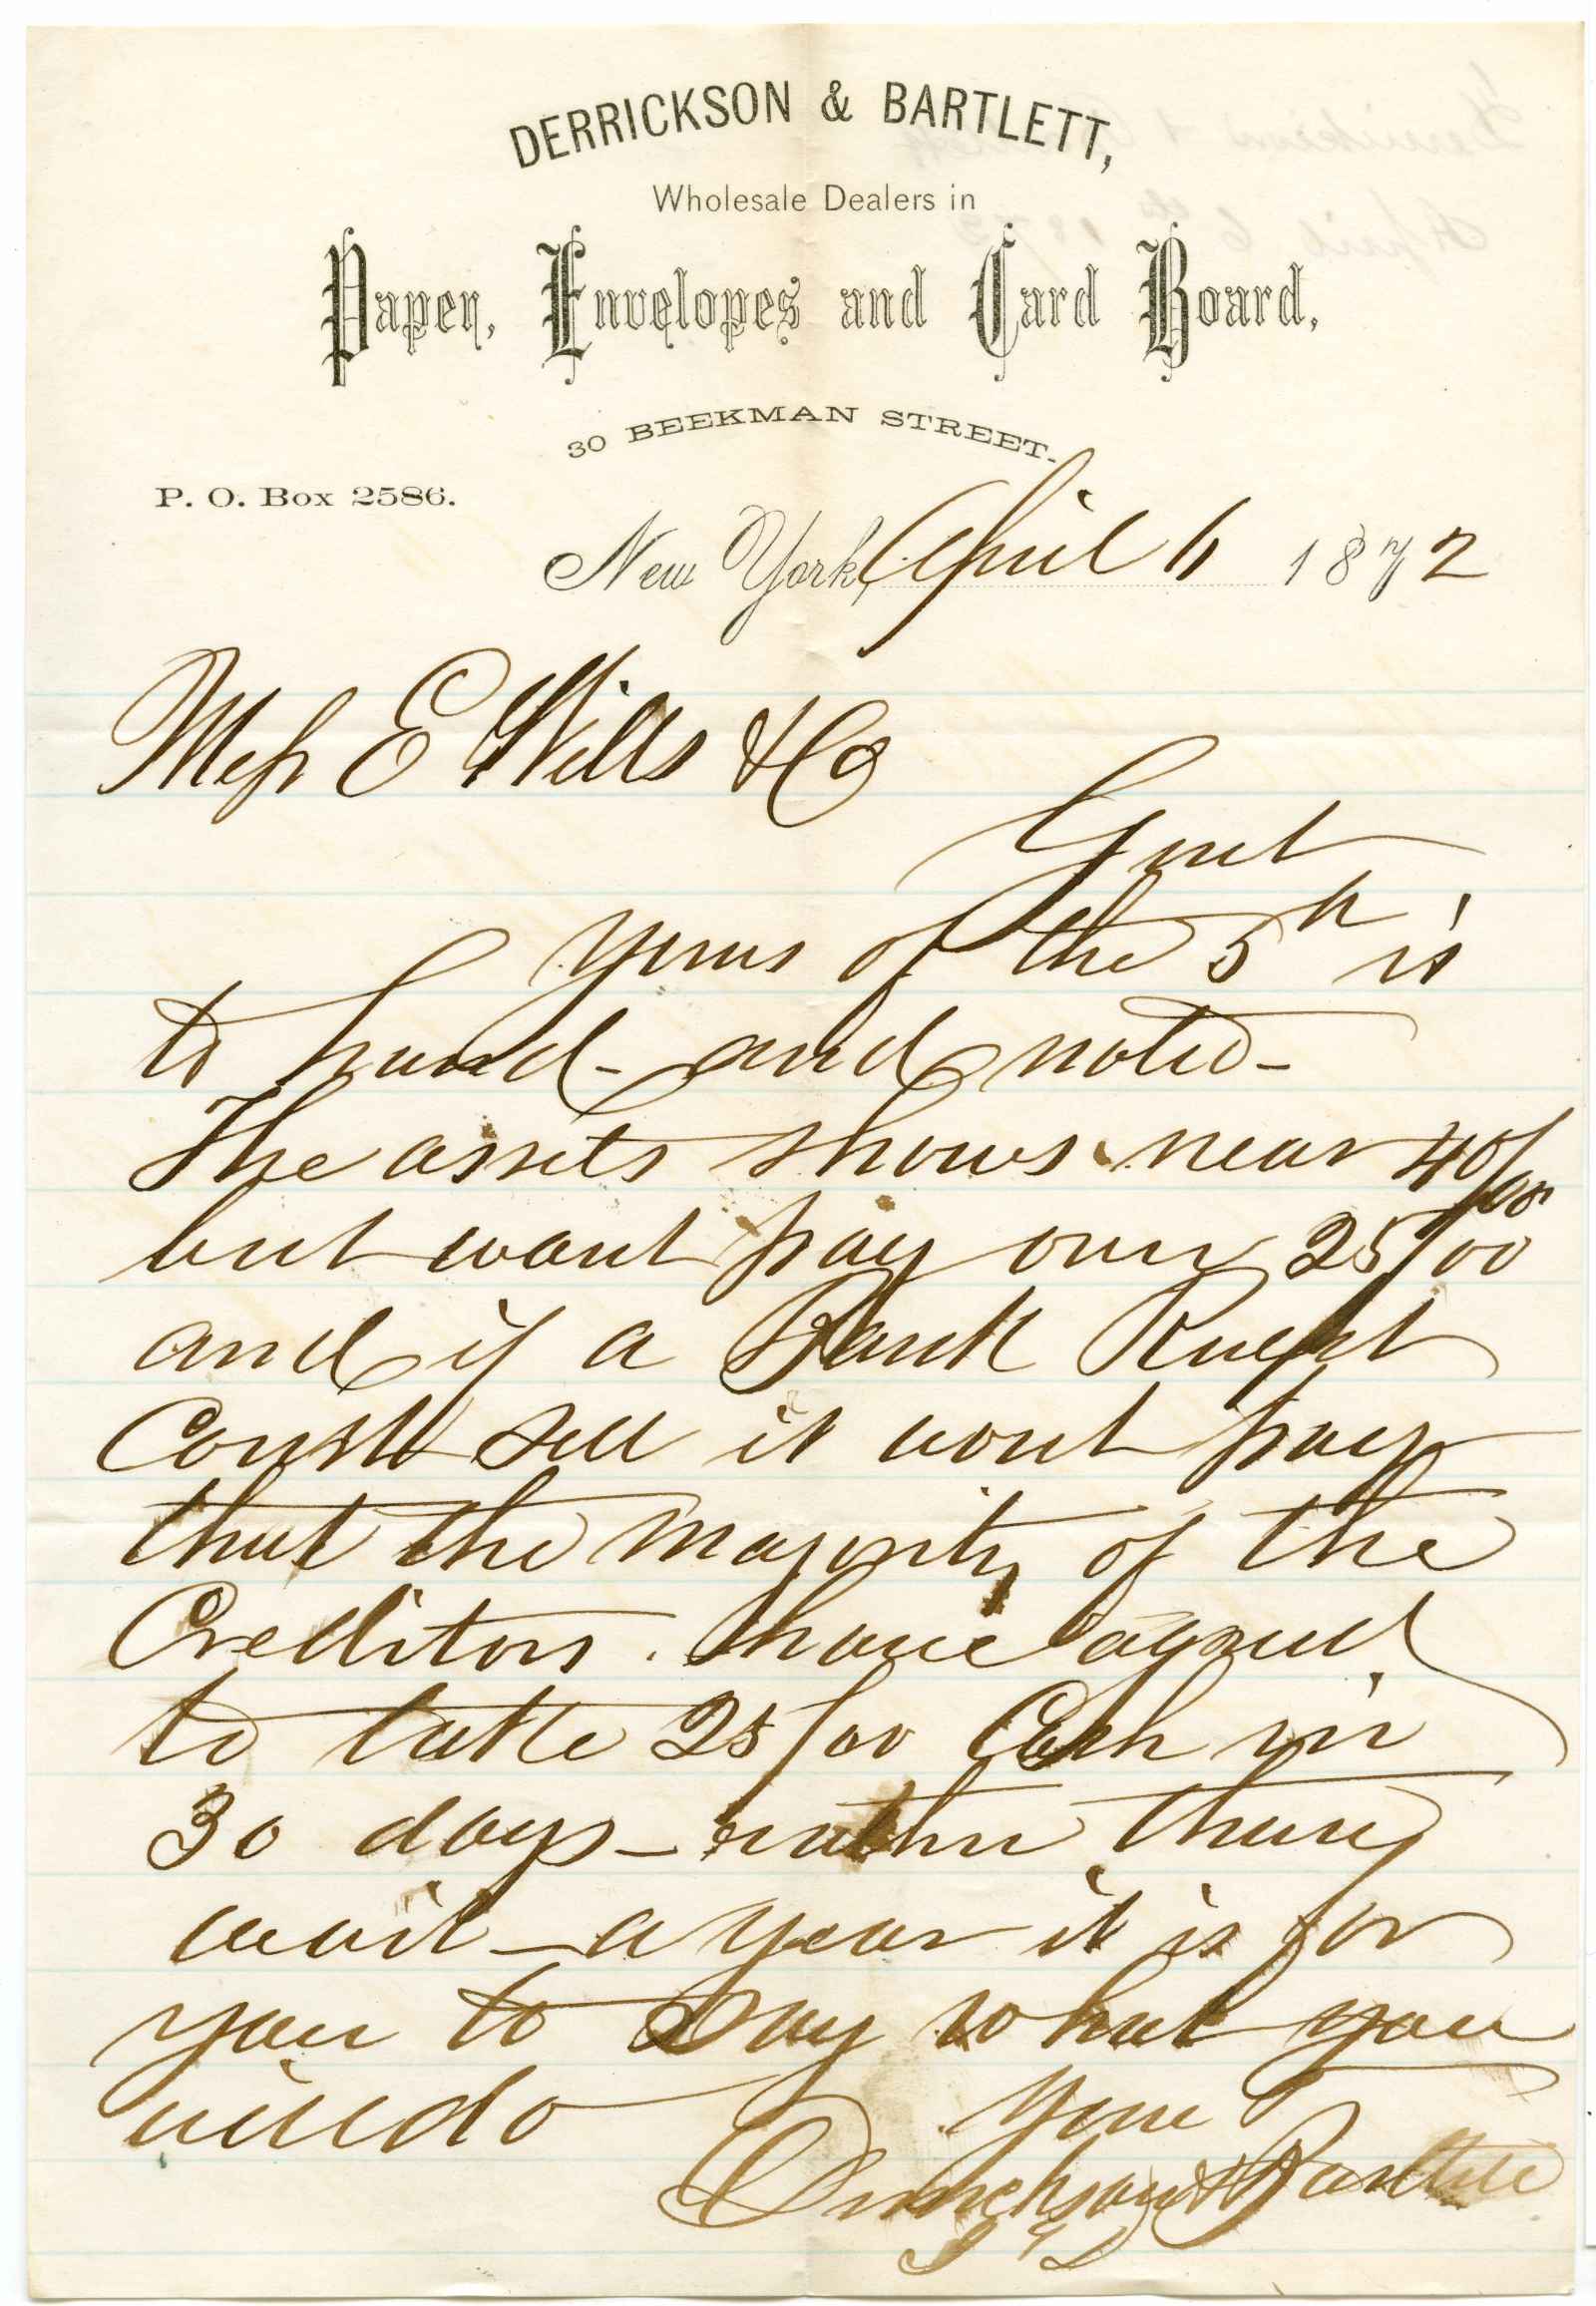 DERRICKSON & BARTLETT,
Wholesale Dealers in
Paper, Envelopes and Card Board,
30 BEEKMAN STREET.
P. O. Box 2586.
New York, April 6 1872
Mess E Wills & Co
Gent
Yours of the 5th is
to hand - and noted -
The assets shows near 40/00
but wont pay over 25/00
and if a Bank Rupt
Court sell it wont pay
that the majority of the
Creditors have agreed
to take 25/00 Cash in
30 days - rather than
wait - a year it is for
you to say what you
will do
Your
Derrickson & Bartlett